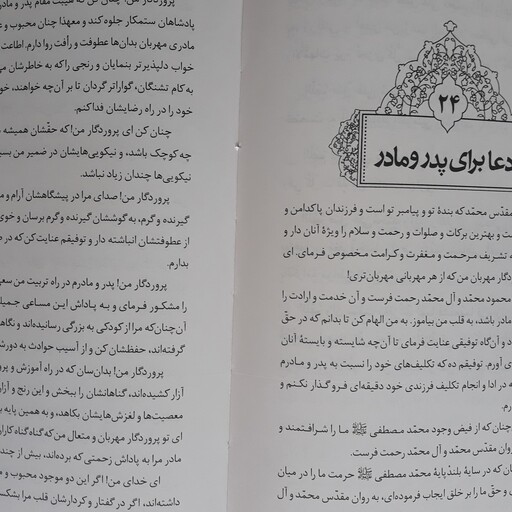 ۲۴
دعا برای پدر و مادر
مقدّس محمّد که بندهٔ تو و پیامبر تو است و فرزندان پاکدامن و
ت و بهترین برکات و صلوات و رحمت و سلام را ویژهٔ آنان دار و
به تشریف مرحمت و مغفرت و کرامت مخصوص فرمای. ای
دگار مهربان من که از هر مهربانی مهربان‌تری!
محمود محمّد و آل محمّد رحمت فرست و آن خدمت و ارادت را
مادر باشد، به قلب من بیاموز. به من الهام کن تا بدانم که در حقّ
د و آن‌گاه توفیقی عنایت فرمای تا آن‌چه شایسته و بایستهٔ آنان
ی آورم. توفیقم ده که تکلیف‌های خود را نسبت به پدر و مادرم
ه در ادا و انجام تکلیف فرزندی خود دقیقه‌ای فروگذار نکنم و
رم.
چنان که از فیض وجود محمّد مصطفی ﷺ ما را شرافتمند و
روان مقدّس محمّد و آل محمّد رحمت فرست.
چنان که در سایهٔ بلندپایهٔ محمّد مصطفی ﷺ حرمت ما را در میان
و حقّ ما را بر خلق ایجاب فرموده‌ای، به روان مقدّس محمّد و آل
پروردگار من! چنان کن که هیبت مقام پدر و مادر
پادشاهان ستمکار جلوه کند و معهذا چنان محبوب و ع
مادری مهربان بدان‌ها عطوفت و رأفت روا دارم. اطاعت
خواب دلپذیرتر بنمایان و رنجی را که به خاطرشان می
به کام تشنگان، گواراتر گردان تا بر آن‌چه خواهند، خو
خود را در راه رضایشان فدا کنم.
چنان کن ای پروردگار من! که حقّشان همیشه د
چه کوچک باشد، و نیکویی‌هایشان در ضمیر من بسی
نیکویی‌ها چندان زیاد نباشد.
پروردگار من! صدای مرا در پیشگاهشان آرام و م
گیرنده و گرم، به گوششان گیرنده و گرم برسان و خوی
از عطوفتشان انباشته دار و توفیقم عنایت کن که در ص
بدارم.
پروردگار من! پدر و مادرم در راه تربیت من سعی
را مشکور فرمای و به پاداش این مساعی جمیل
آن‌چنان که مرا از کودکی به بزرگی رسانیده‌اند و نگاه
گرفته‌اند، حفظشان کن و از آسیب حوادث به دورش
پروردگار من! بدان‌سان که در راه آموزش و پرور
آزار کشیده‌اند، گناهانشان را ببخش و این رنج و آزار
معصیت‌ها و لغزش‌هایشان بکاهد، و به همین پایه ب
ای تو پروردگار مهربان و متعال من که گناه گناه‌کاران
مادر مرا به پاداش زحمتی که برده‌اند، بیش از چند
ای خدای من! اگر این دو موجود محبوب و م
داشته‌اند، اگر در گفتار و کردارشان قلب مرا بشکس